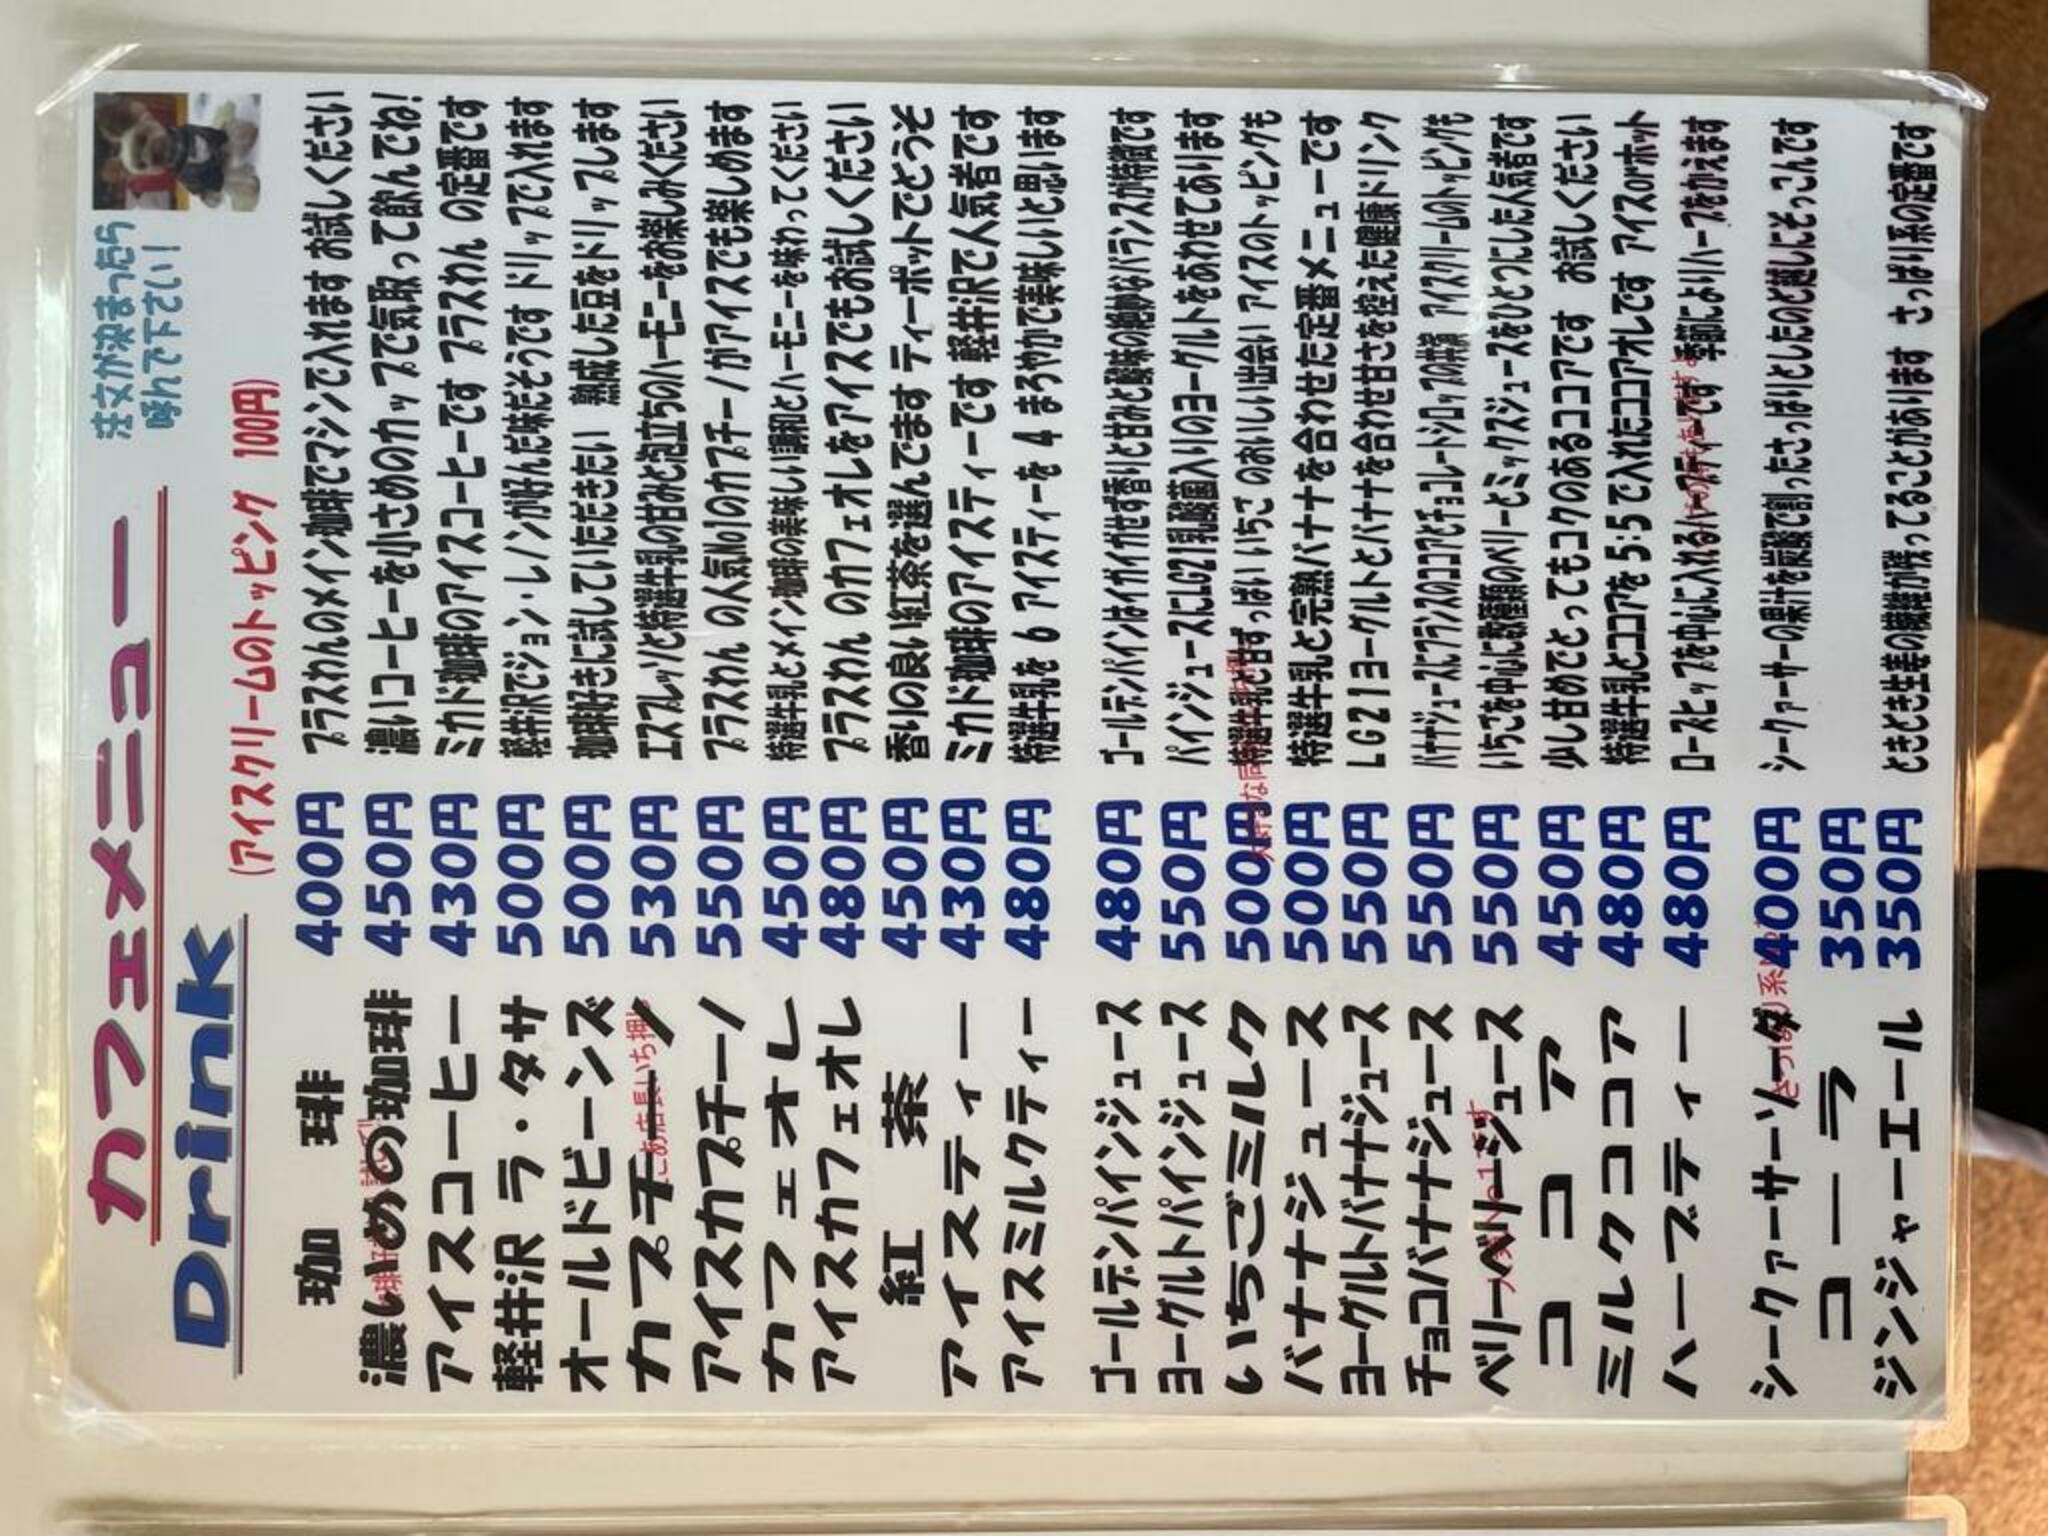 カフェメニュー
注文が決まったら
呼んで下さい！
Drink
(アイスクリームのトッピング 100円)
珈 琲 400円 プラスわんのメイン珈琲でマシンで入れます お試しください
濃いめの珈琲 450円 濃いコーヒーを小さめのカップで気取って飲んでね！
アイスコーヒー 430円 ミカド珈琲のアイスコーヒーです プラスわん の定番です
軽井沢 ラ・タサ 500円 軽井沢でジョン・レノンが好んだ味だそうです ドリップで入れます
オールドビーンズ 500円 珈琲好きに試していただきたい 熟成した豆をドリップします
カプチーノ 530円 エスプレッソと特選牛乳の甘みと泡立ちのハーモニーをお楽しみください
店長いち押し
アイスカプチーノ 550円 プラスわん の人気No1のカプチーノがアイスでも楽しめます
カフェオレ 450円 特選牛乳とメイン珈琲の美味しい調和とハーモニーを味わってください
アイスカフェオレ 480円 プラスわん のカフェオレをアイスでもお試しください
紅 茶 450円 香りの良い紅茶を選んでます ティーポットでどうぞ
アイスティー 430円 ミカド珈琲のアイスティーです 軽井沢で人気者です
アイスミルクティー 480円 特選牛乳を 6 アイスティーを 4 まろやかで美味しいと思います
ゴールデンパインジュース 480円 ゴールデンパインはイガイガせず香りと甘みと酸味の絶妙なバランスが特徴です
ヨーグルトパインジュース 550円 パインジュースにLG21乳酸菌入りのヨーグルトをあわせてあります
いちごミルク 500円 特選牛乳と甘ずっぱい いちご のおいしい出会い アイスのトッピングも
バナナジュース 500円 特選牛乳と完熟バナナを合わせた定番メニューです
ヨーグルトバナナジュース 550円 LG21ヨーグルトとバナナを合わせ甘さを控えた健康ドリンク
チョコバナナジュース 550円 バナナジュースにフランスのココアとチョコレートシロップの共演 アイスクリームのトッピングも
ベリーベリージュース 550円 いちごを中心に数種類のベリーとミックスジュースをひとつにした人気者です
ココア 450円 少し甘めでとってもコクのあるココアです お試しください
ミルクココア 480円 特選牛乳とココアを 5:5 で入れたココアオレです アイスorホット
ハーブティー 480円 ローズヒップを中心に入れるハーブティーです 季節によりハーブをかえます
シークァーサーソーダ 400円 シークァーサーの果汁を炭酸で割ったさっぱりとしたのど越しにぞっこんです
コーラ 350円
ジンジャーエール 350円 ときどき生姜の繊維が残ってることがあります さっぱり系の定番です